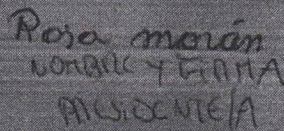 Rosa morán
NOMBRE Y FIRMA
PRESIDENTE/A